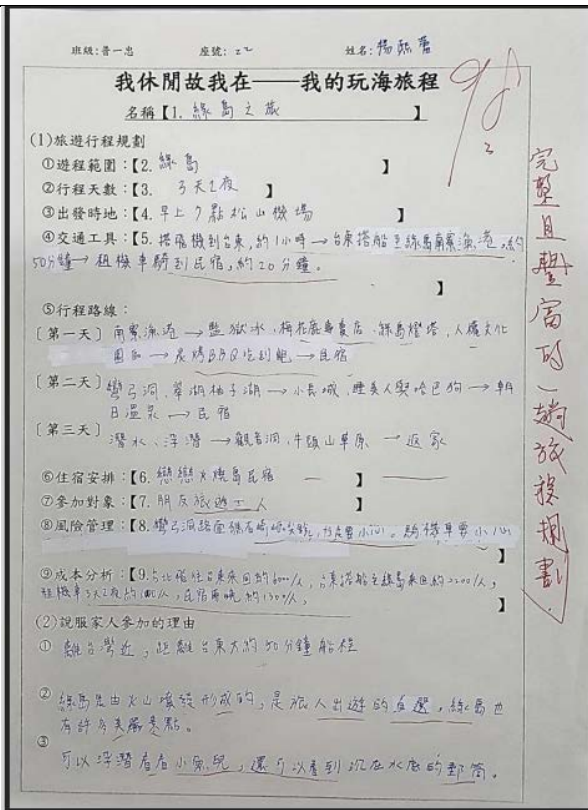 班級:普一忠 座號:22 姓名:楊
我休閒故我在——我的玩海旅程
98
名稱【1. 綠島之旅 】
(1)旅遊行程規劃
①遊程範圍:【2. 綠島 】
②行程天數:【3. 3天2夜 】
③出發時地:【4. 早上7點松山機場 】
④交通工具:【5. 搭飛機到台東,約1小時→台東搭船至綠島南寮漁港,約
50分鐘→租機車騎到民宿,約20分鐘。
】
⑤行程路線:
〔第一天〕南寮漁港→監獄冰、梅花鹿專賣店、綠島燈塔、人權文化
園區→炭烤BBQ吃到飽→民宿
〔第二天〕彎弓洞、翠湖柚子湖→小長城、睡美人與哈巴狗→朝
日溫泉→民宿
〔第三天〕潛水、浮潛→觀音洞、牛頭山草原→返家
⑥住宿安排:【6. 戀戀火燒島民宿 】
⑦參加對象:【7. 朋友旅遊二人 】
⑧風險管理:【8. 彎弓洞路面礁石崎嶇,要小心。騎機車要小心
】
⑨成本分析:【9. 台北飛往台東來回約6000/人,台東搭船至綠島來回約2200/人,
租機車3天2夜約/人,民宿兩晚約1300/人, 】
(2)說服家人參加的理由
① 離台灣近,距離台東大約50分鐘船程
② 綠島是由火山噴發形成的,是旅人出遊的首選,綠島也
有許多美麗景點。
③
可以浮潛看看小魚兒,還可以看到沉在水底的郵筒。
完整且豐富的一趟旅程規劃!